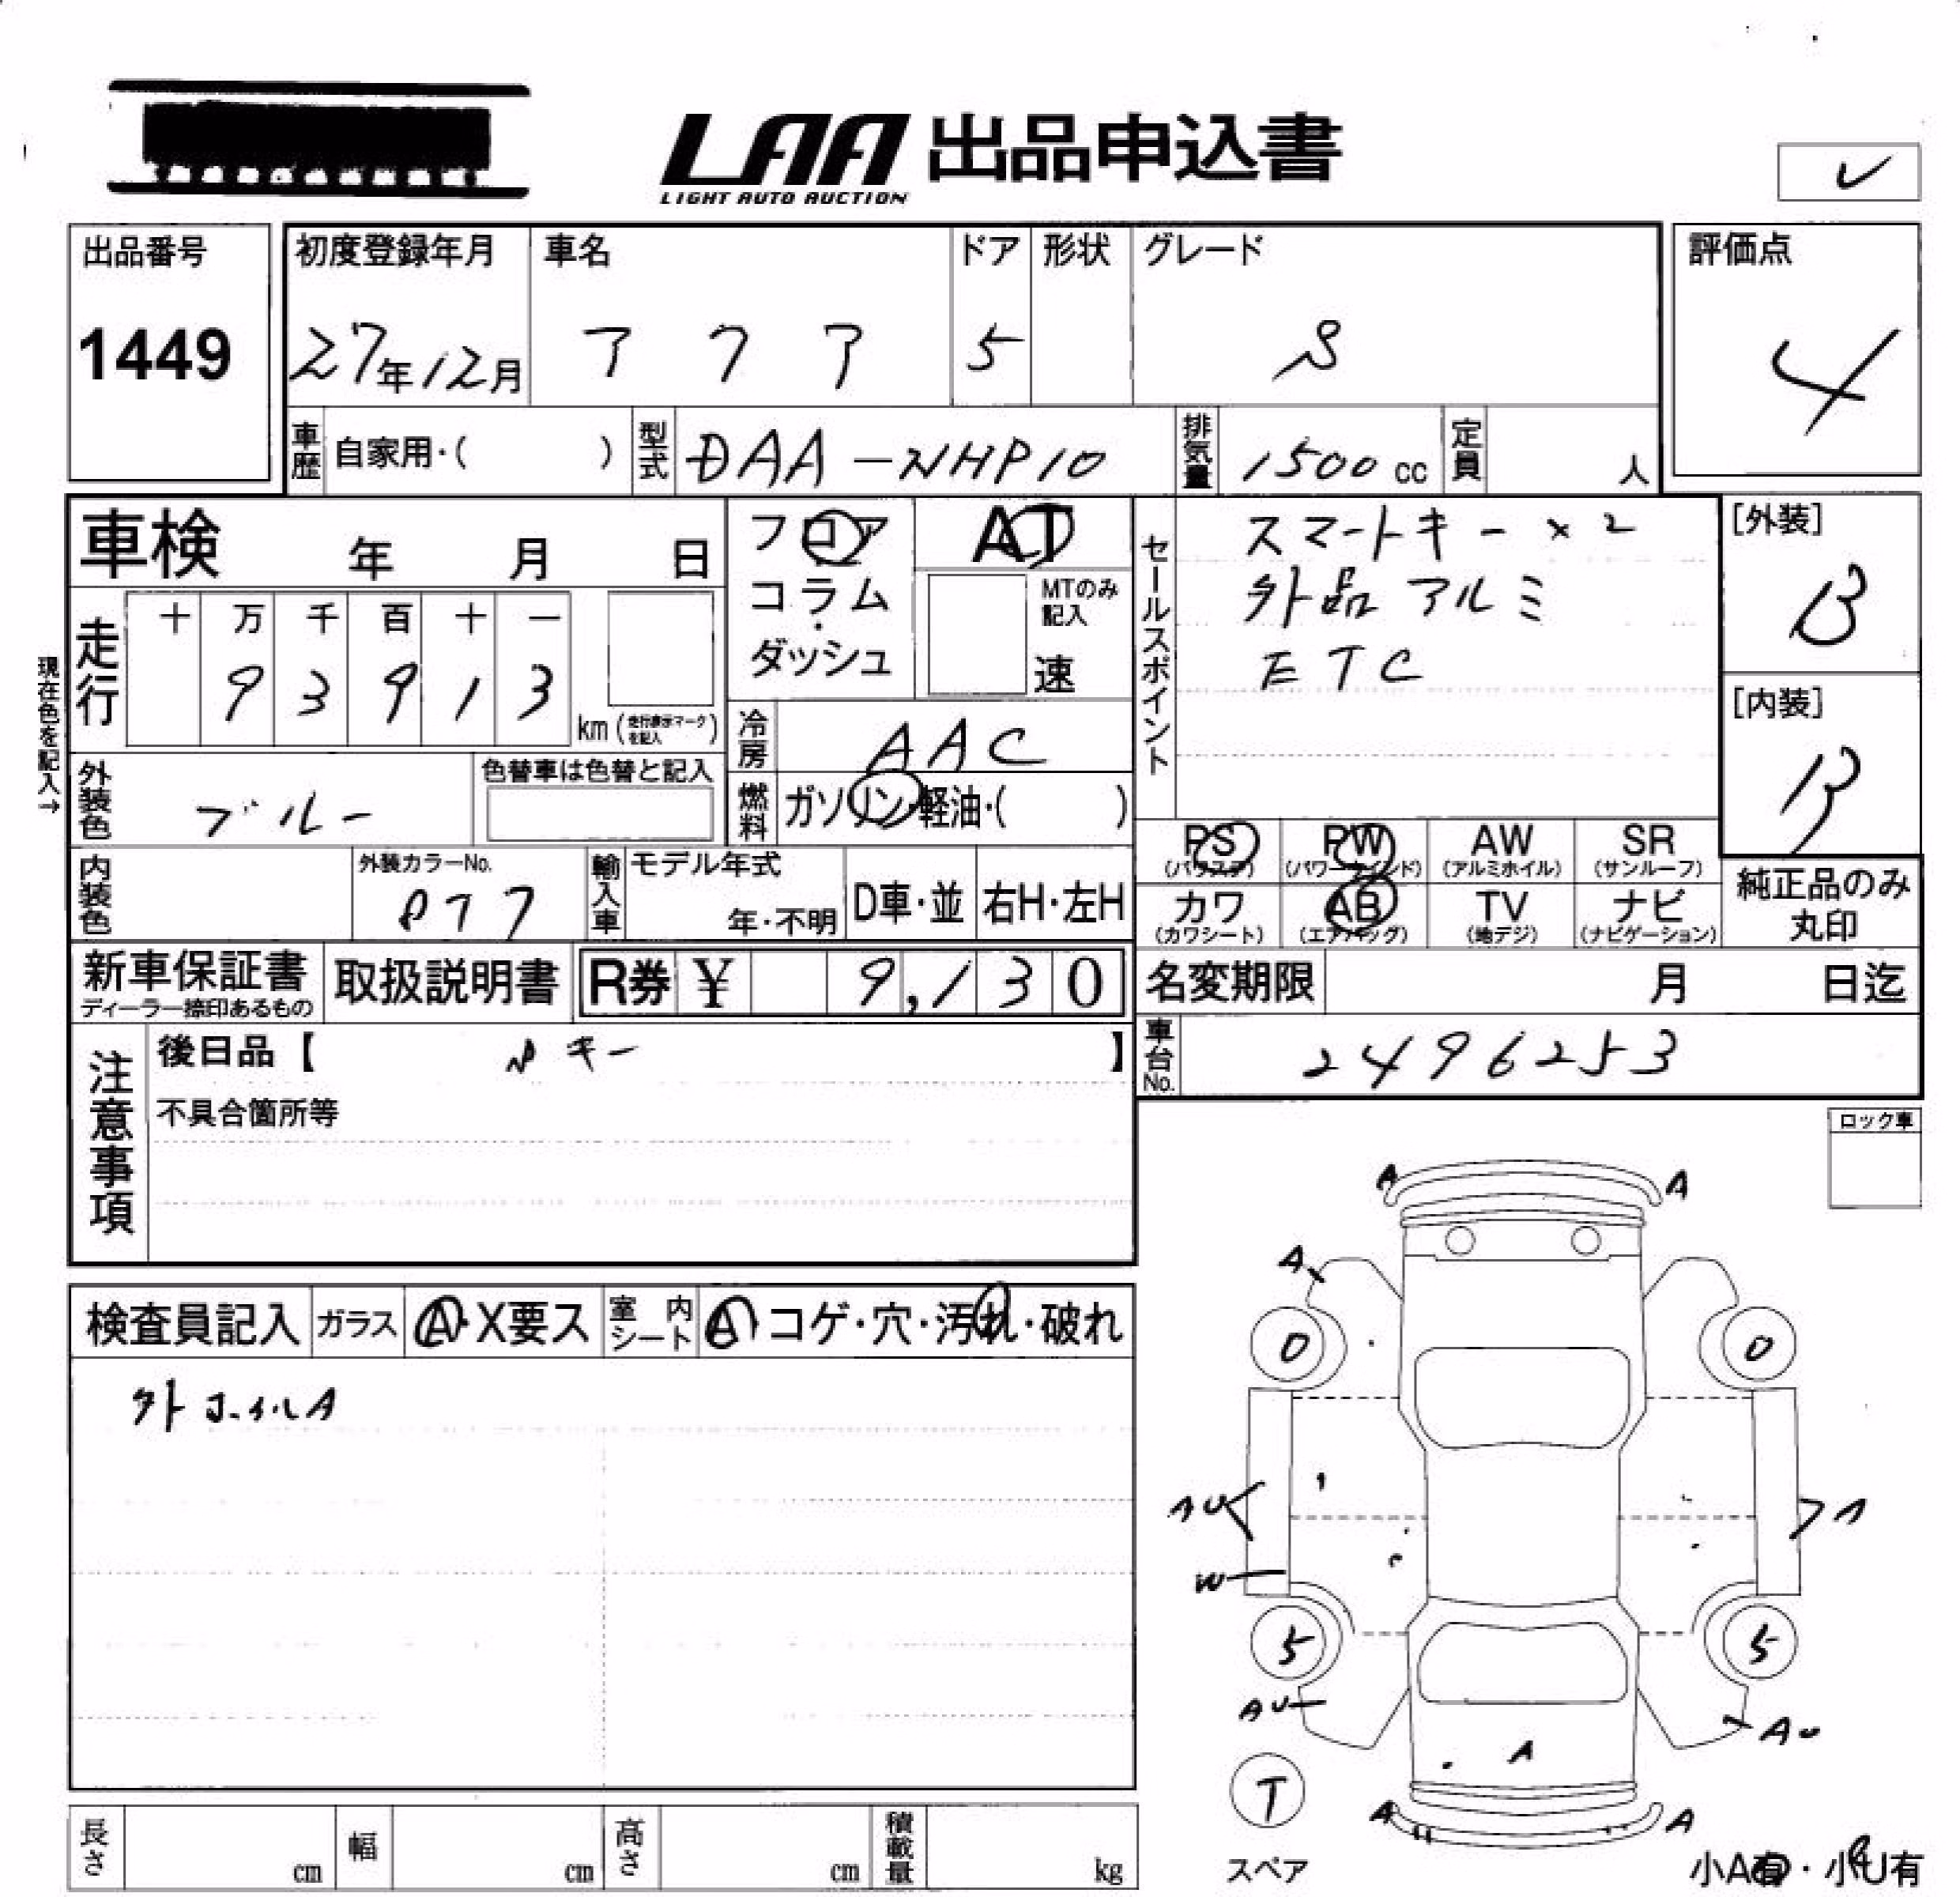 LAA 出品申込書
LIGHT AUTO AUCTION
レ
出品番号
1449
初度登録年月
27年12月
車名
アクア
ドア
5
形状
グレード
S
評価点
4
車歴 自家用・( )
型式 DAA-NHP10
排気量 1500cc
定員 人
車検 年 月 日
フロア
コラム
・
ダッシュ
AT
MTのみ記入
速
セールスポイント
スマートキー×2
外品アルミ
ETC
[外装]
B
[内装]
B
現在色を記入→
走行
十 万 千 百 十 一
9 3 9 1 3
km (走行表示マークを記入)
冷房 AAC
燃料 ガソリン・軽油・( )
外装色 ブルー
色替車は色替と記入
内装色
外装カラーNo.
輸入車
モデル年式
年・不明
D車・並
右H・左H
PS (パワステ)
PW (パワーウインド)
AW (アルミホイル)
SR (サンルーフ)
カワ (カワシート)
AB (エアバッグ)
TV (地デジ)
ナビ (ナビゲーション)
純正品のみ
丸印
新車保証書
ディーラー捺印あるもの
取扱説明書
R券 ¥ 9,130
名変期限 月 日迄
車台No. 2496253
注意事項
後日品【 キー 】
不具合箇所等
ロック車
検査員記入
ガラス A・X要ス
室内シート A コゲ・穴・汚れ・破れ
外ホイルA
A A
A
0 0
AU A
W
5 5
AU AU
A
T
A A
スペア
小A有・小U有
長さ cm
幅 cm
高さ cm
積載量 kg